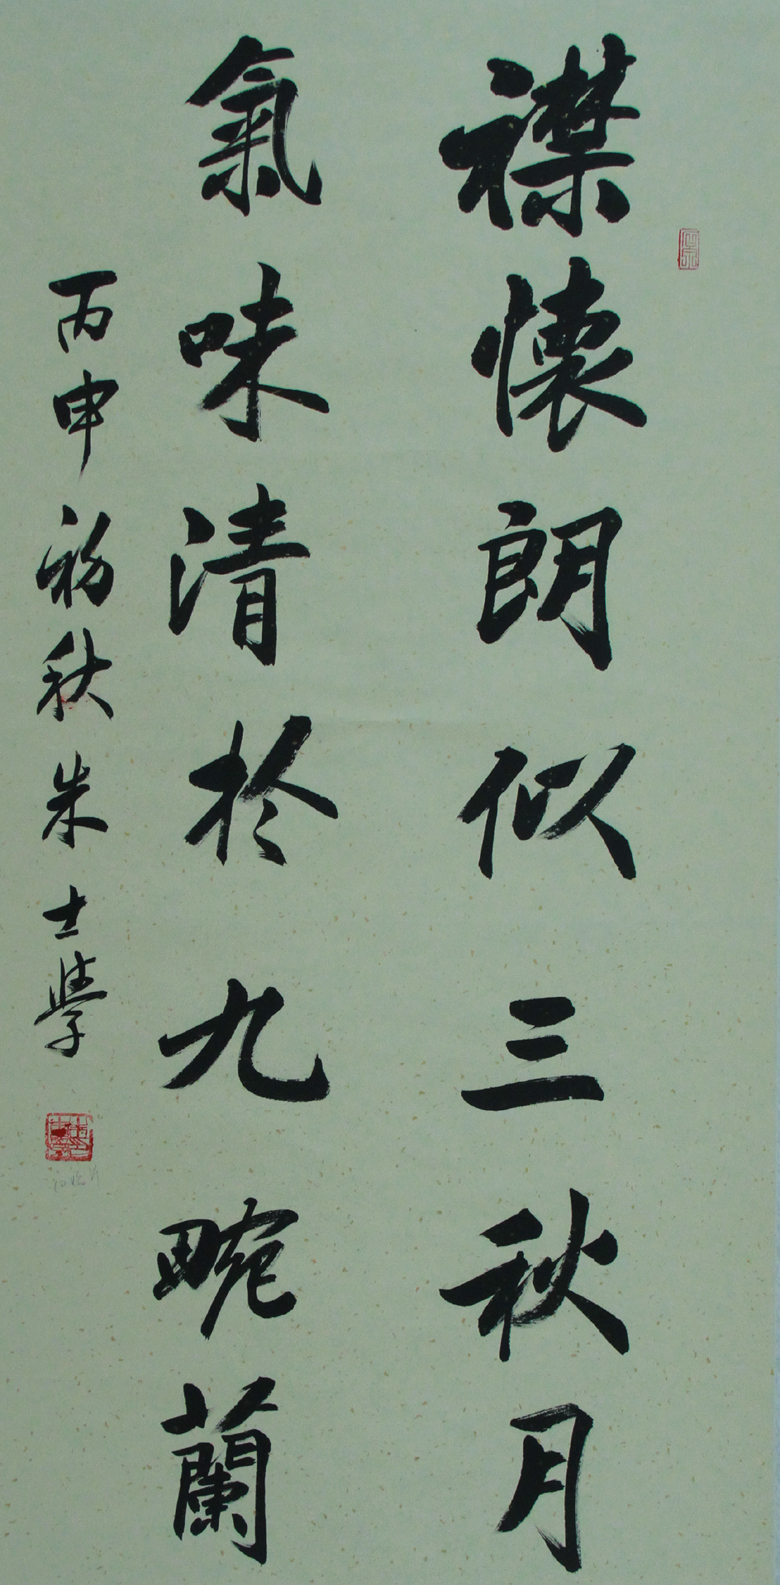 襟懷朗似三秋月
氣味清於九畹蘭
丙申初秋朱士學